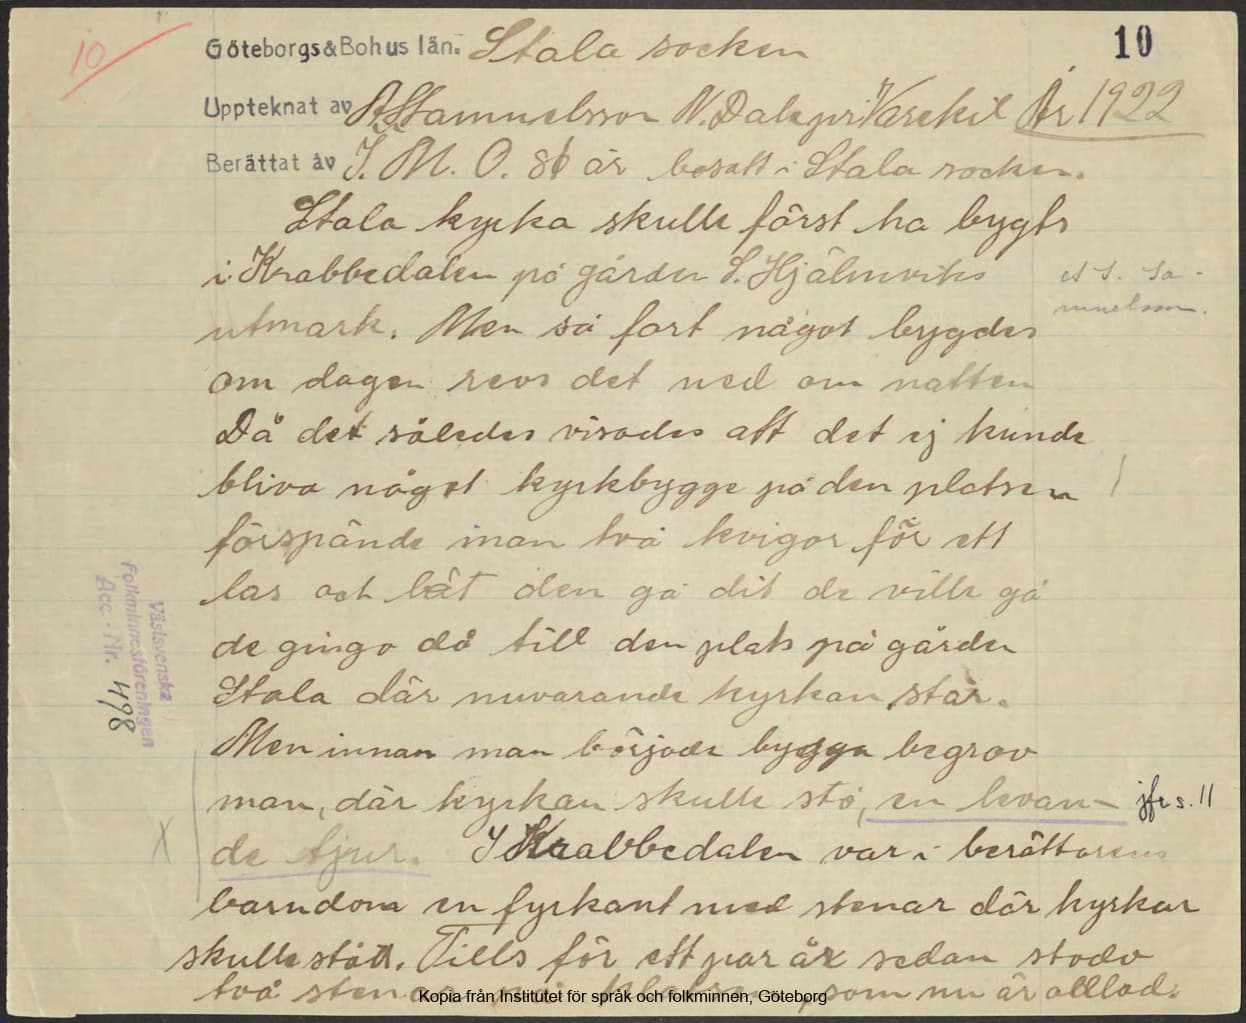 10
Göteborgs & Bohus län. Stala socken
10
Uppteknat av A. S. Samuelsson N. Dale pr Varekil År 1922
Berättat av J. M. O. 86 år bosatt i Stala socken.
Stala kyrka skulle först ha bygts
i Krabbedalen på gården S. Hjälmviks
A S. Sa-
muelsson.
utmark. Men så fort något bygdes
om dagen revs det ned om natten
Då det således visades att det ej kunde
bliva något kyrkbygge på den platsen
förspände man två kvigor för ett
las och lät den gå dit de ville gå
de gingo då till den plats på gården
Stala där nuvarande kyrkan står.
Men innan man började bygga begrov
man, där kyrkan skulle stå, en levan-
jfr s. 11
de tjur. I Krabbedalen var i berättarens
barndom en fyrkant med stenar där kyrkan
skulle stått. Tills för ett par år sedan stodo
två stenar på platsen, som nu är odlad.
Västsvenska
Folkminnesföreningen
Acc.-Nr. 498
Kopia från Institutet för språk och folkminnen, Göteborg